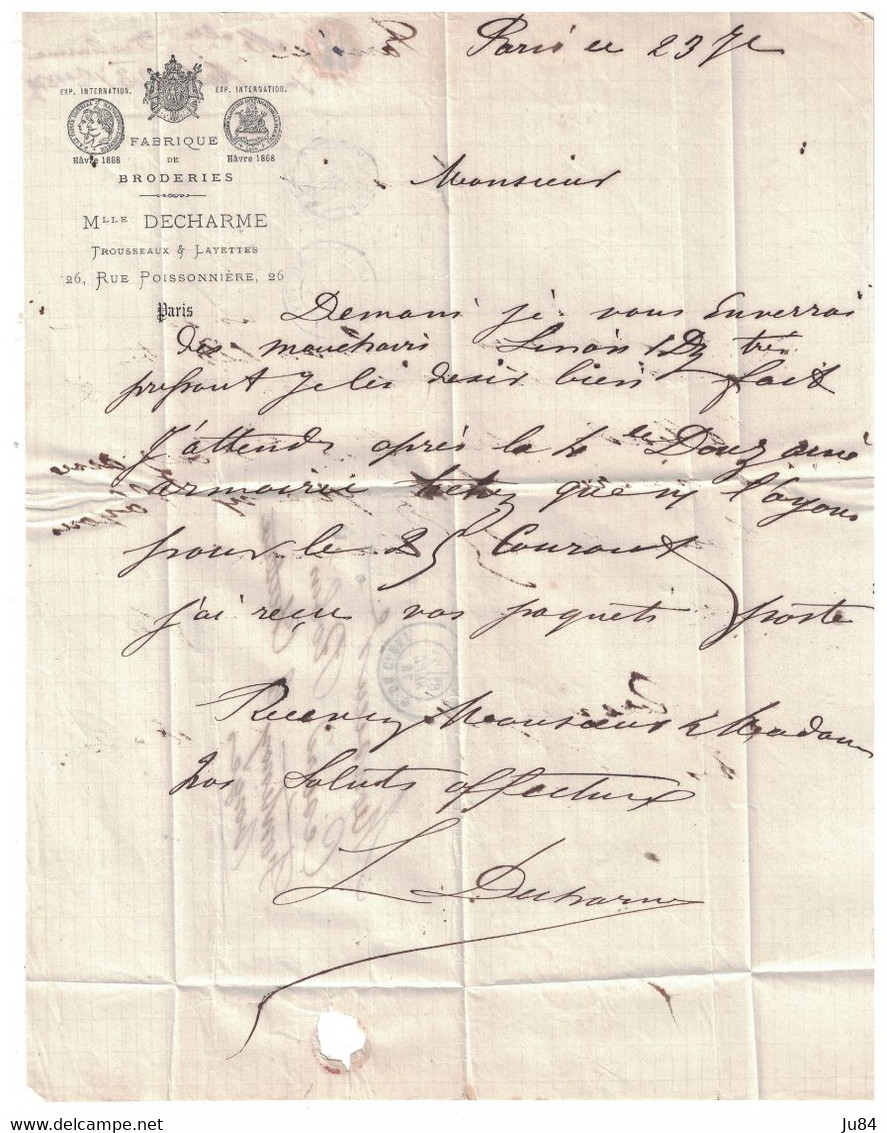 Paris le 23 7e
EXP. INTERNATION. EXP. INTERNATION.
Hâvre 1868 Hâvre 1868
FABRIQUE
DE
BRODERIES
MLLE DECHARME
TROUSSEAUX & LAYETTES
26, RUE POISSONNIÈRE, 26
Paris
Monsieur
Demain je vous Enverrai
des mouchoirs Linon 1 Dz très
pressant Je les desir bien fait
J'attends après la 4 de Douzaine
armoirie que l'ayons
pour le 25 Courant
j'ai reçu vos paquets poste
Recevez Monsieur & Madame
nos Saluts affectueux
L Decharme
Ju84